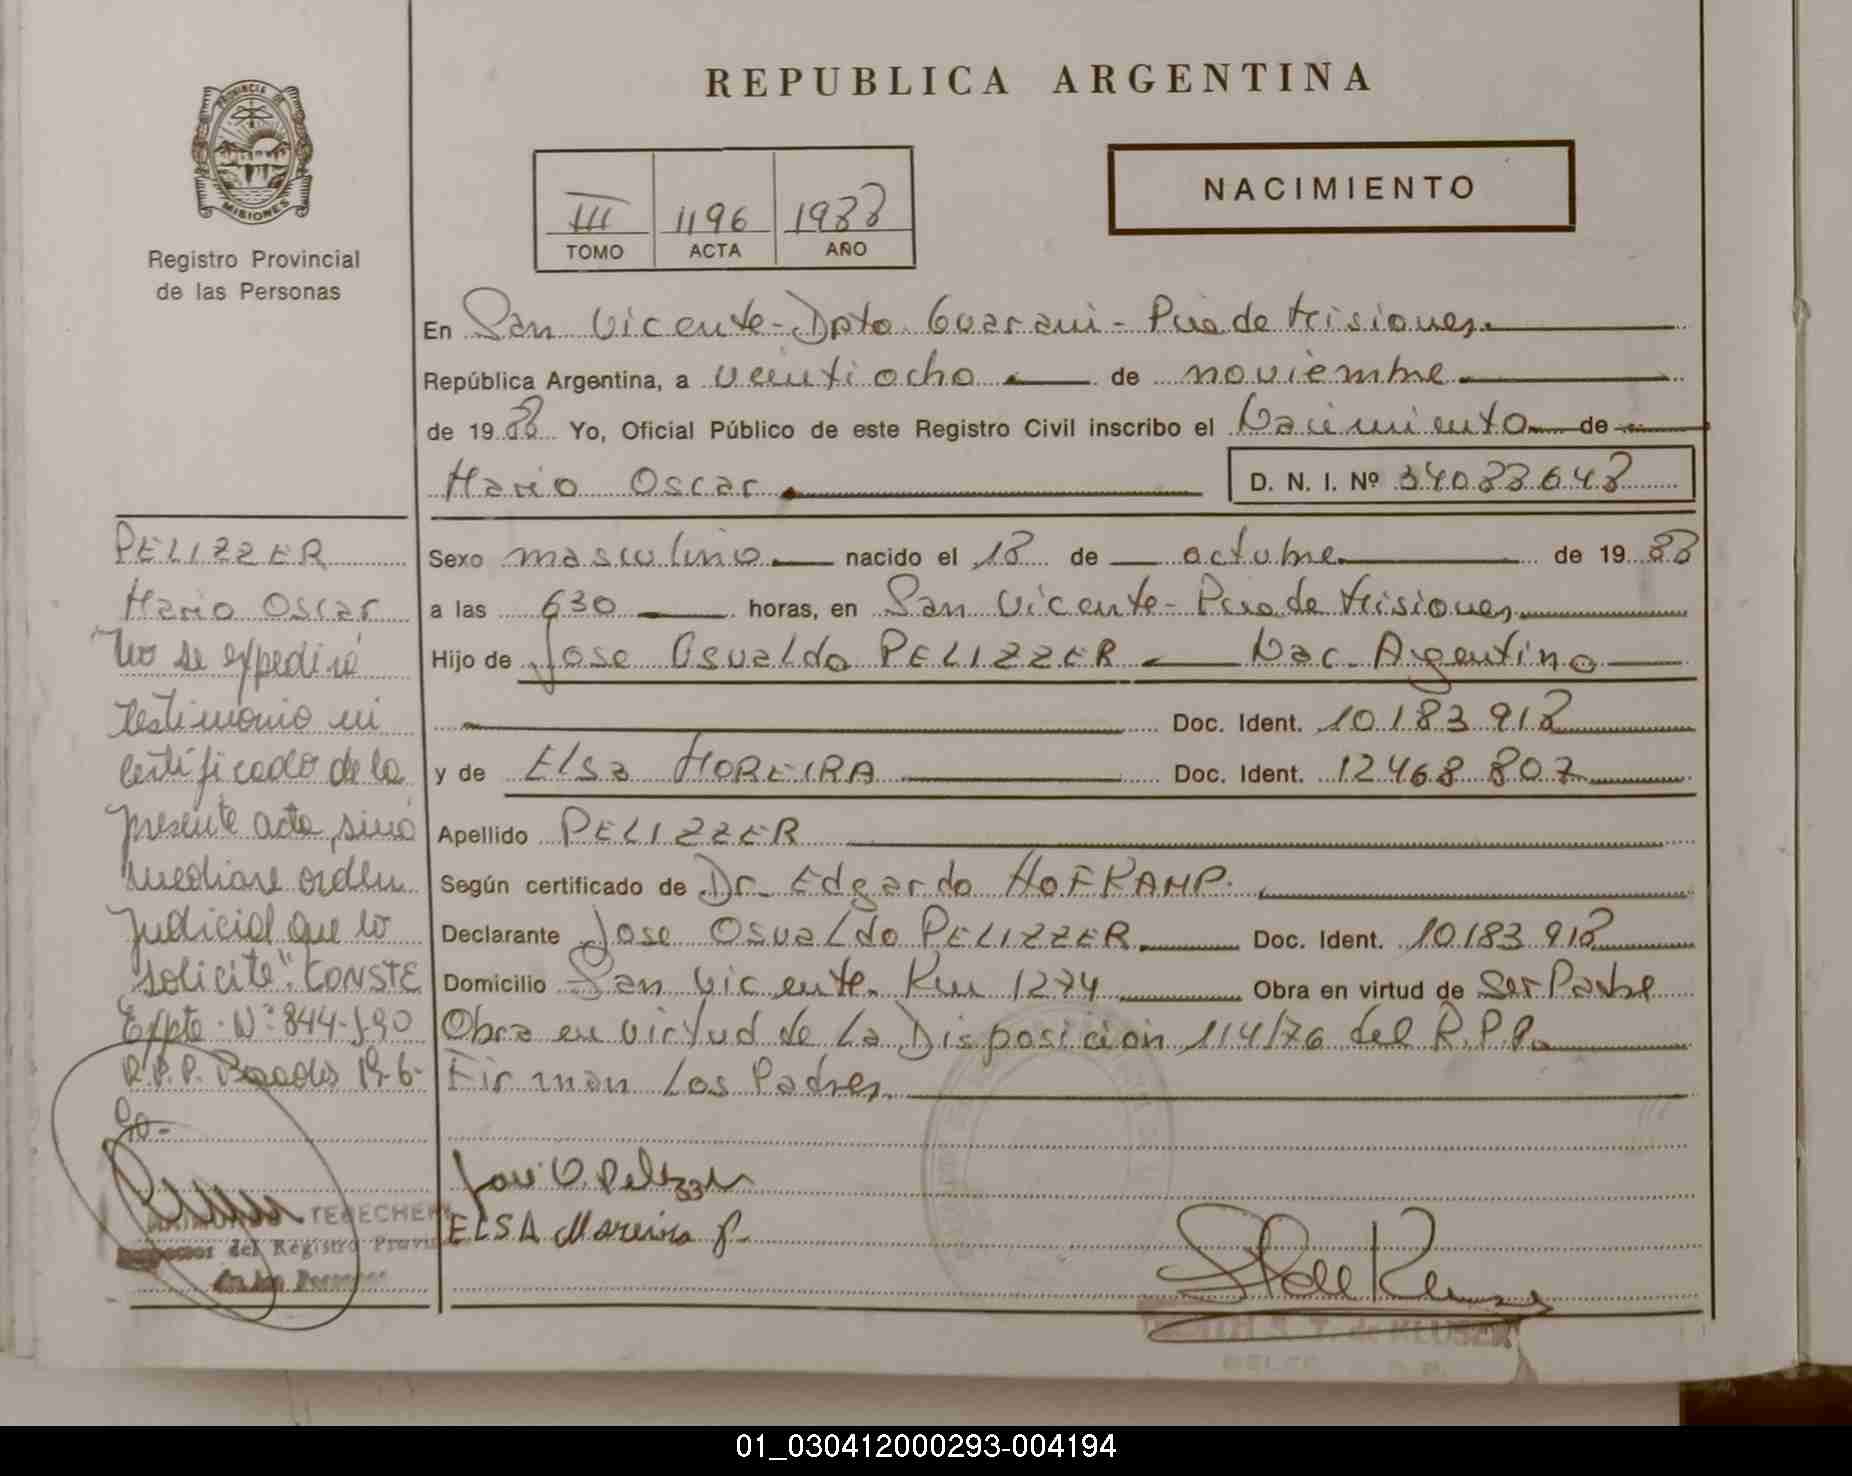 REPUBLICA ARGENTINA
PROVINCIA DE
MISIONES
Registro Provincial
de las Personas
III 1196 1988
TOMO ACTA AÑO
NACIMIENTO
En San Vicente - Dpto. Guarani - Pcia de Misiones.
República Argentina, a veintiocho de noviembre
de 1988 Yo, Oficial Público de este Registro Civil inscribo el Nacimiento de
Mario Oscar D. N. I. Nº 34088648
Sexo masculino nacido el 18 de octubre de 1988
a las 630 horas, en San Vicente - Pcia de Misiones
Hijo de Jose Osvaldo PELIZZER Nac. Argentino
Doc. Ident. 10.183.918
y de Elsa MOREIRA Doc. Ident. 12.468.807
Apellido PELIZZER
Según certificado de Dr. Edgardo HOFKAMP.
Declarante Jose Osvaldo PELIZZER Doc. Ident. 10.183.918
Domicilio San Vicente. Km 1274 Obra en virtud de Ser Padre
Obra en virtud de La Disposicion 114/76 del R.P.P.
Firman Los Padres.
José O. Pelizzer
ELSA Moreira
PELIZZER
Mario Oscar
"No se expedirá
testimonio ni
certificado de la
presente acta, sino
mediare orden
Judicial que lo
solicite". CONSTE
Expte. Nº 844-J-90
R.P.P. Posadas 19-6-
90.-
del Registro
de las Personas
de KLUSER
01_030412000293-004194